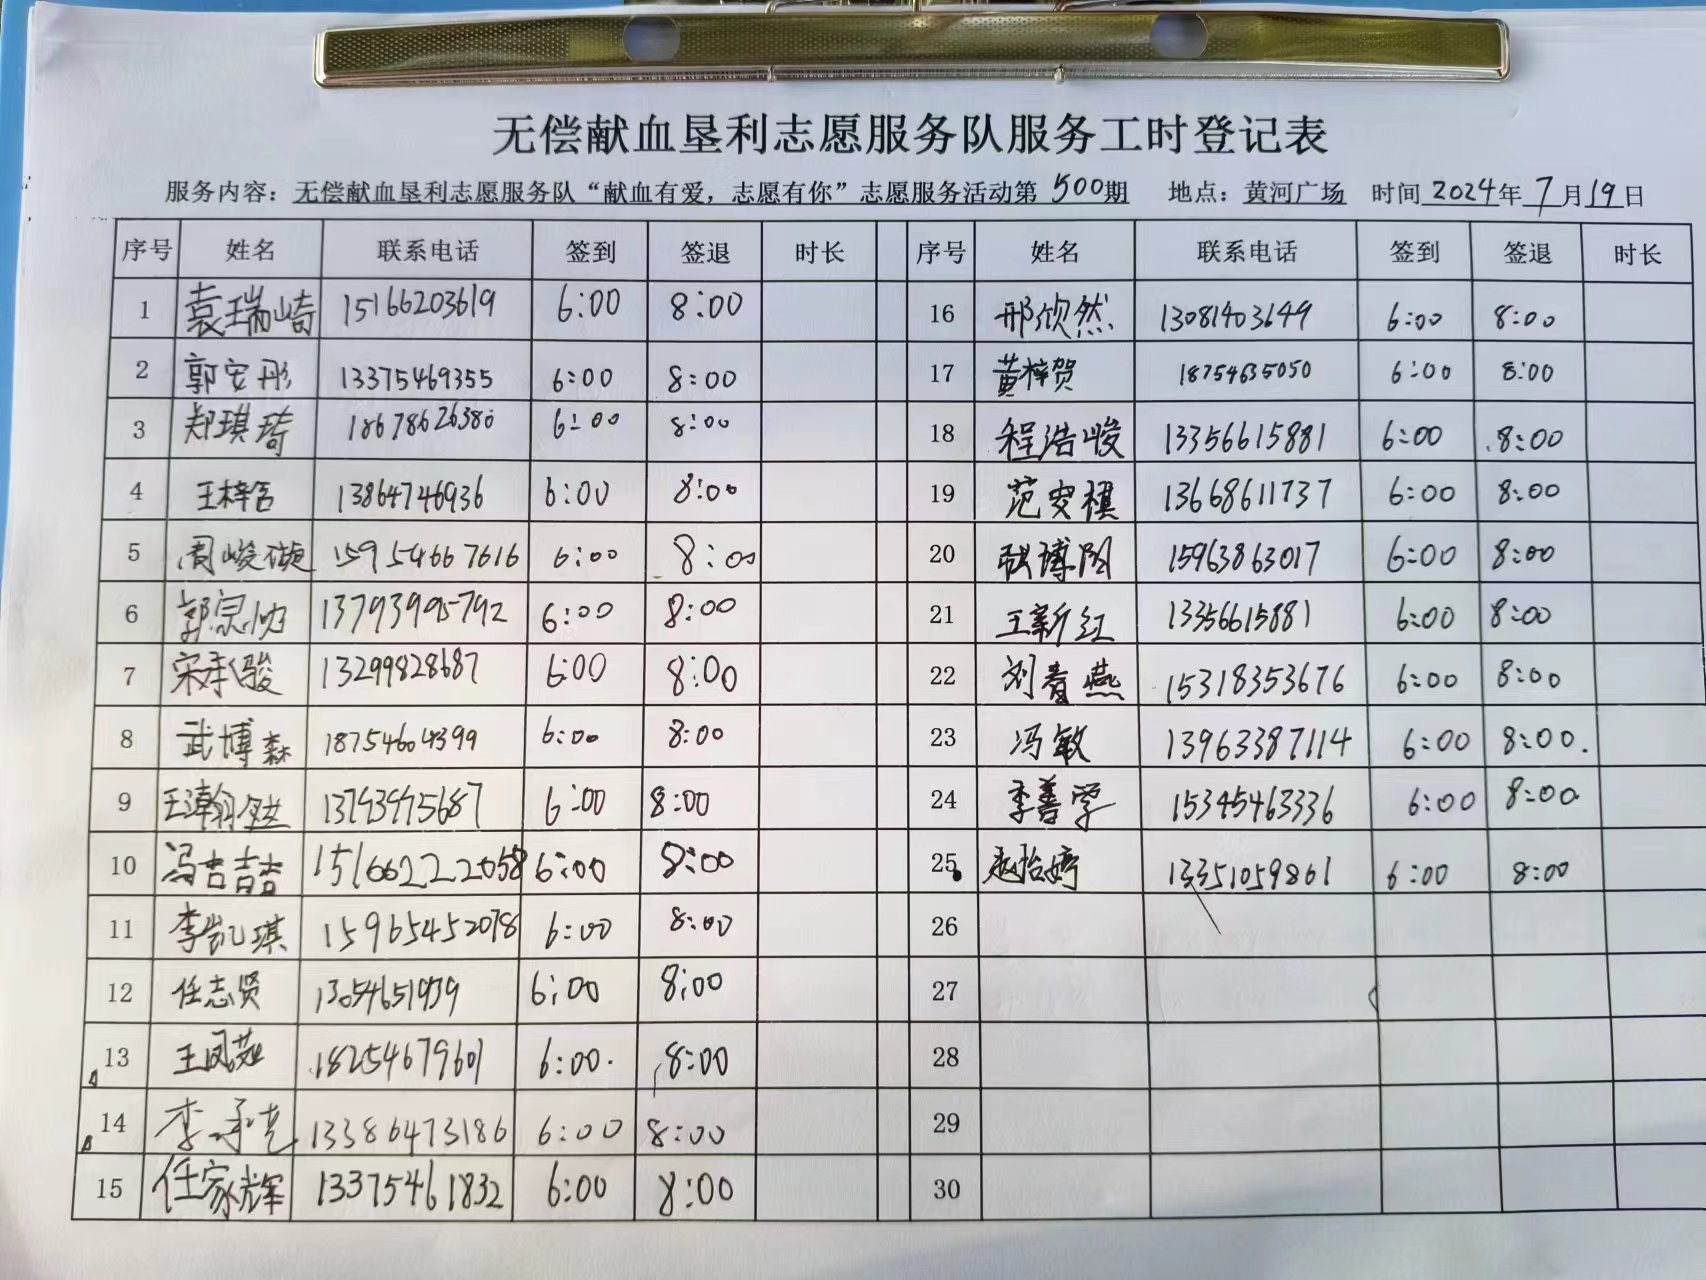 无偿献血垦利志愿服务队服务工时登记表
服务内容：无偿献血垦利志愿服务队“献血有爱，志愿有你”志愿服务活动第500期 地点：黄河广场 时间2024年7月19日
序号 姓名 联系电话 签到 签退 时长 序号 姓名 联系电话 签到 签退 时长
1 袁瑞崎 15166203619 6:00 8:00 16 邢欣然 13081403649 6:00 8:00
2 郭安彤 13375469355 6:00 8:00 17 黄梓贺 18754635050 6:00 8:00
3 郑琪琦 18678626380 6:00 8:00 18 程浩峻 13356615881 6:00 8:00
4 王梓 13864746936 6:00 8:00 19 范安棋 13668611737 6:00 8:00
5 周峻 15954667616 6:00 8:00 20 博 15963863017 6:00 8:00
6 郭 13793995792 6:00 8:00 21 王新红 13356615881 6:00 8:00
7 宋承骏 13299828687 6:00 8:00 22 刘青燕 15318353676 6:00 8:00
8 武博森 18754604399 6:00 8:00 23 冯敏 13963387114 6:00 8:00.
9 王瀚 13793975687 6:00 8:00 24 李善学 15345463336 6:00 8:00.
10 冯吉喆 15166222058 6:00 8:00 25 赵怡婷 13351059861 6:00 8:00
11 李凯琪 15965452078 6:00 8:00 26
12 任志贤 13054651939 6:00 8:00 27
13 王凤英 18254679601 6:00. 8:00 28
14 李承 13386473186 6:00 8:00 29
15 任家辉 13375461832 6:00 8:00 30